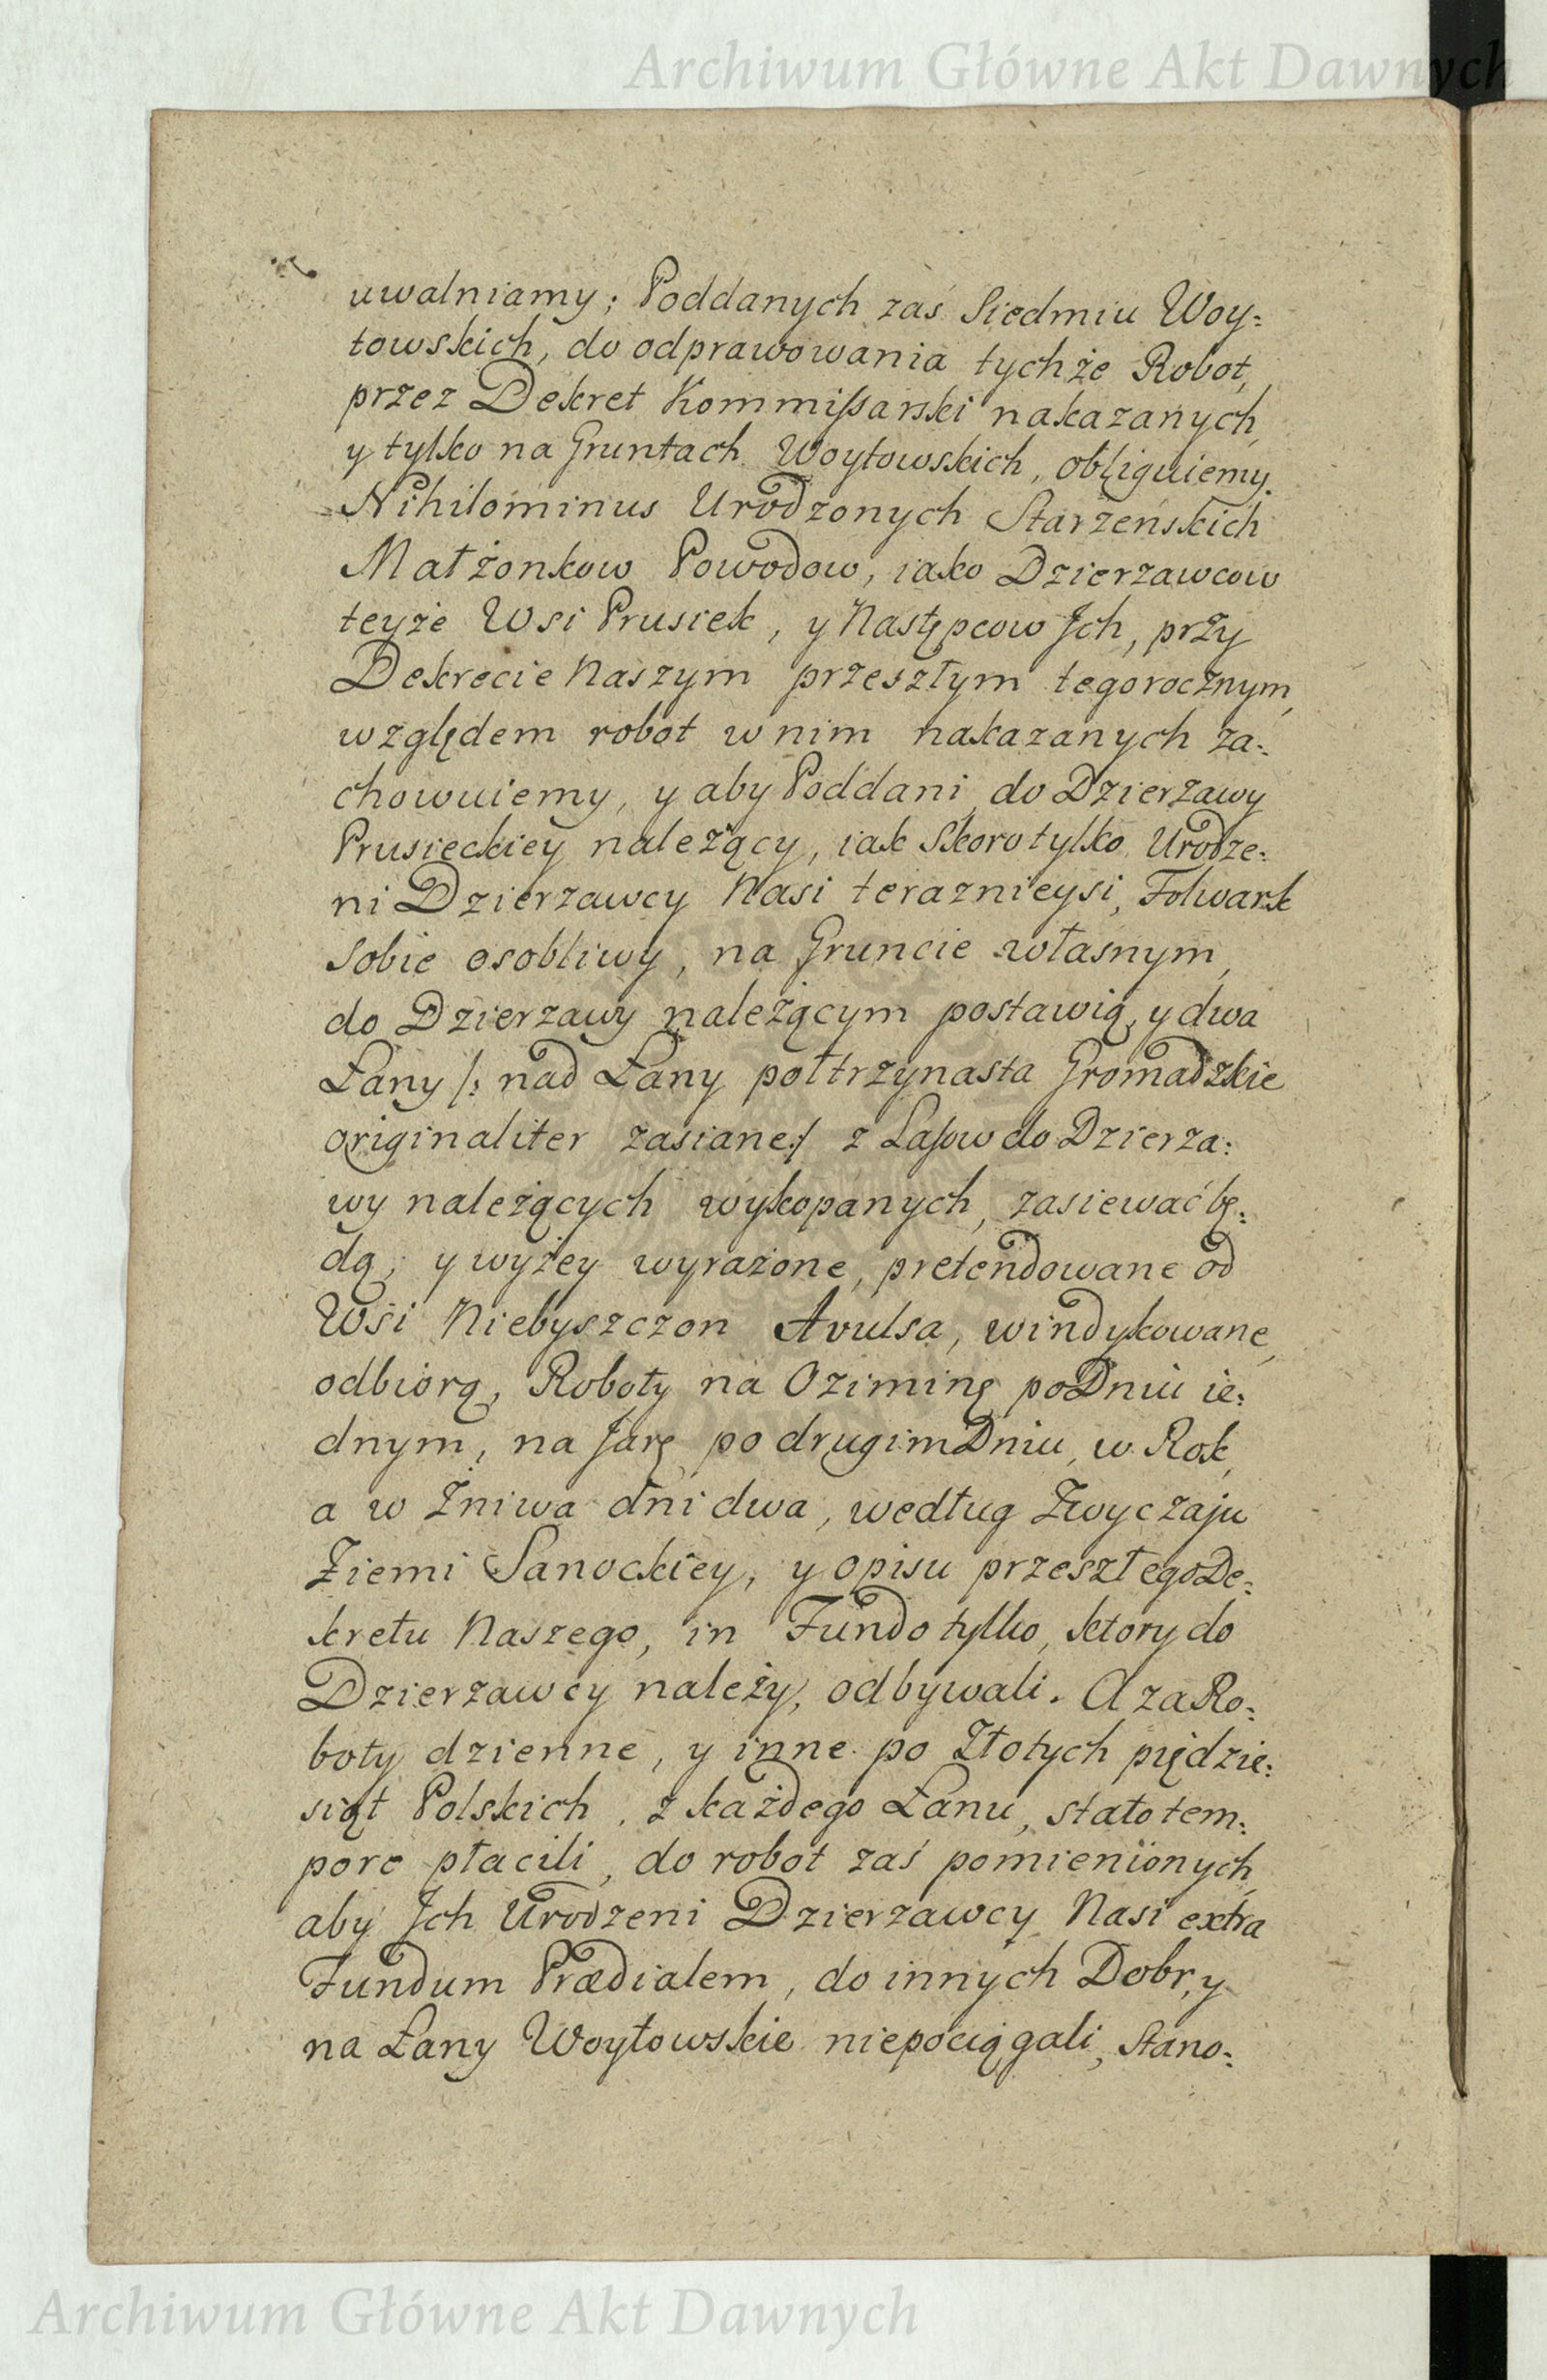 Archiwum Główne Akt Dawnych
uwalniamy; Poddanych zaś Siedmiu Woy=
towskich, do odprawowania tychże Robot,
przez Dekret Kommißarski nakazanych,
y tylko na Gruntach Woytowskich, obliguiemy.
Nihilominus Urodzonych Starzenskich
Małżonkow Powodow, iako Dzierzawcow
teyże Wsi Prusiek, y Następcow Jch, przy
Dekrecie Naszym przeszłym tegorocznym,
względem robot w nim nakazanych za=
chowuiemy, y aby Poddani do Dzierzawy
Prusieckiey należący, iak Skoro tylko Urodze=
ni Dzierzawcy Nasi teraznieysi, Folwark
Sobie osobliwy, na Gruncie własnym,
do Dzierzawy należącym postawią, y dwa
Łany /: nad Łany połtrzynasta Gromadzkie
originaliter zasiane:/ z Lasow do Dzierza=
wy należących wykopanych, zasiewać bę=
dą; y wyżey wyrażone, pretendowane od
Wsi Niebyszczon Avulsa, windykowane,
odbiorą, Roboty na Oziminę po Dniu ie=
dnym, na Jarę po drugim Dniu, w Rok,
a w Żniwa dni dwa, według Zwyczaju
Ziemi Sanockiey, y opisu przeszłego De=
kretu Naszego, in Fundo tylko, ktory do
Dzierzawcy należy, odbywali. A za Ro=
boty dzienne, y inne po Złotych pięćdzie=
siąt Polskich, z każdego Łanu, stato tem=
pore płacili, do robot zaś pomienionych,
aby Jch Urodzeni Dzierzawcy Nasi extra
Fundum Prædialem, do innych Dobr, y
na Łany Woytowskie niepociągali, stano=
Archiwum Główne Akt Dawnych